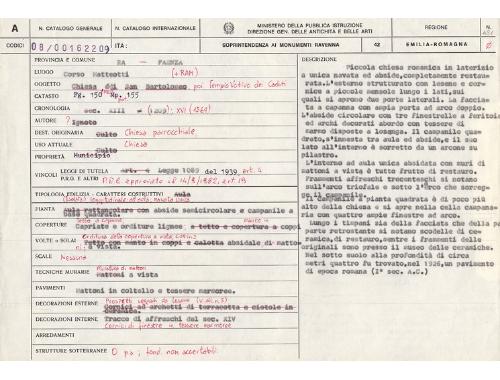 A
N. CATALOGO GENERALE
N. CATALOGO INTERNAZIONALE
MINISTERO DELLA PUBBLICA ISTRUZIONE
DIREZIONE GEN. DELLE ANTICHITÀ E BELLE ARTI
REGIONE
N.
CODICI
08/00162209
ITA:
SOPRINTENDENZA AI MONUMENTI RAVENNA
42
EMILIA-ROMAGNA
PROVINCIA E COMUNE
RA - FAENZA
LUOGO
Corso Matteotti (+RAM)
OGGETTO
Chiesa di San Bartolomeo poi Tempio Votivo dei Caduti
CATASTO
Fg. 150 Mp. 155
CRONOLOGIA
sec. XIII (1209); XVI (1561)
AUTORE
Ignoto
DEST. ORIGINARIA
Culto Chiesa parrocchiale
USO ATTUALE
Culto Chiesa
PROPRIETÀ
Municipio
VINCOLI
LEGGI DI TUTELA
art. 4 Legge 1089 del 1939, art. 4
P.R.G. E ALTRI
TIPOLOGIA EDILIZIA - CARATTERI COSTRUTTIVI
Aula
PIANTA
Aula rettangolare con abside semicircolare e campanile a
base quadrata.
COPERTURE
Capriate e orditure lignee a tetto e copertura a coppi
VOLTE o SOLAI
Tetto con manto in coppi e calotta absidale di matto-
ni a vista
SCALE
Nessuna
TECNICHE MURARIE
Muratura di mattoni
Mattoni a vista
PAVIMENTI
Mattoni in coltello e tessere marmoree.
DECORAZIONI ESTERNE
Cornici ad archetti di terracotta e ciotole in
ceramica.
DECORAZIONI INTERNE
Tracce di affreschi del sec. XIV
Cornici di finestre in tessere marmoree
ARREDAMENTI
STRUTTURE SOTTERRANEE
fond. non accertabili
DESCRIZIONE
Piccola chiesa romanica in laterizio
a unica navata ed abside, completamente restau-
rata. L'esterno strutturato con lesene e cor-
nice a piccole mensole lungo i lati, sui
quali si aprono due porte laterali. La faccia-
ta a capanna con ampia porta ad arco doppio.
L'abside circolare con tre finestrelle a feritoia
ed archi decorati abordo con tessere di
marmo disposte a losanga. Il campanile qua-
drato, s'innesta tra aula ed abside, e il suo
lato all'interno è sorretto da un arcone su
pilastro.
L'interno ad aula unica absidata con muri di
mattoni a vista è tutto frutto di restauro.
Frammenti affreschi trecenteschi si notano
sull'arco trionfale e sotto l'arco che sorreg-
ge il campanile.
Il campanile a pianta quadra è di poco più
alto della chiesa e si apre nella cella campana-
ria con quattro ampie finestre ad arco.
Lungo i tispani sia della facciata che della pa
parte retrostante si notano scodelle di ce-
ramica, di restauro, mentre i frammenti delle
originali sono presso il museo delle ceramiche.
Nel sotto suolo alla profondità di circa
metri quattro fu trovato, nel 1926, un pavimento
di epoca romana (I° sec. A.C.)